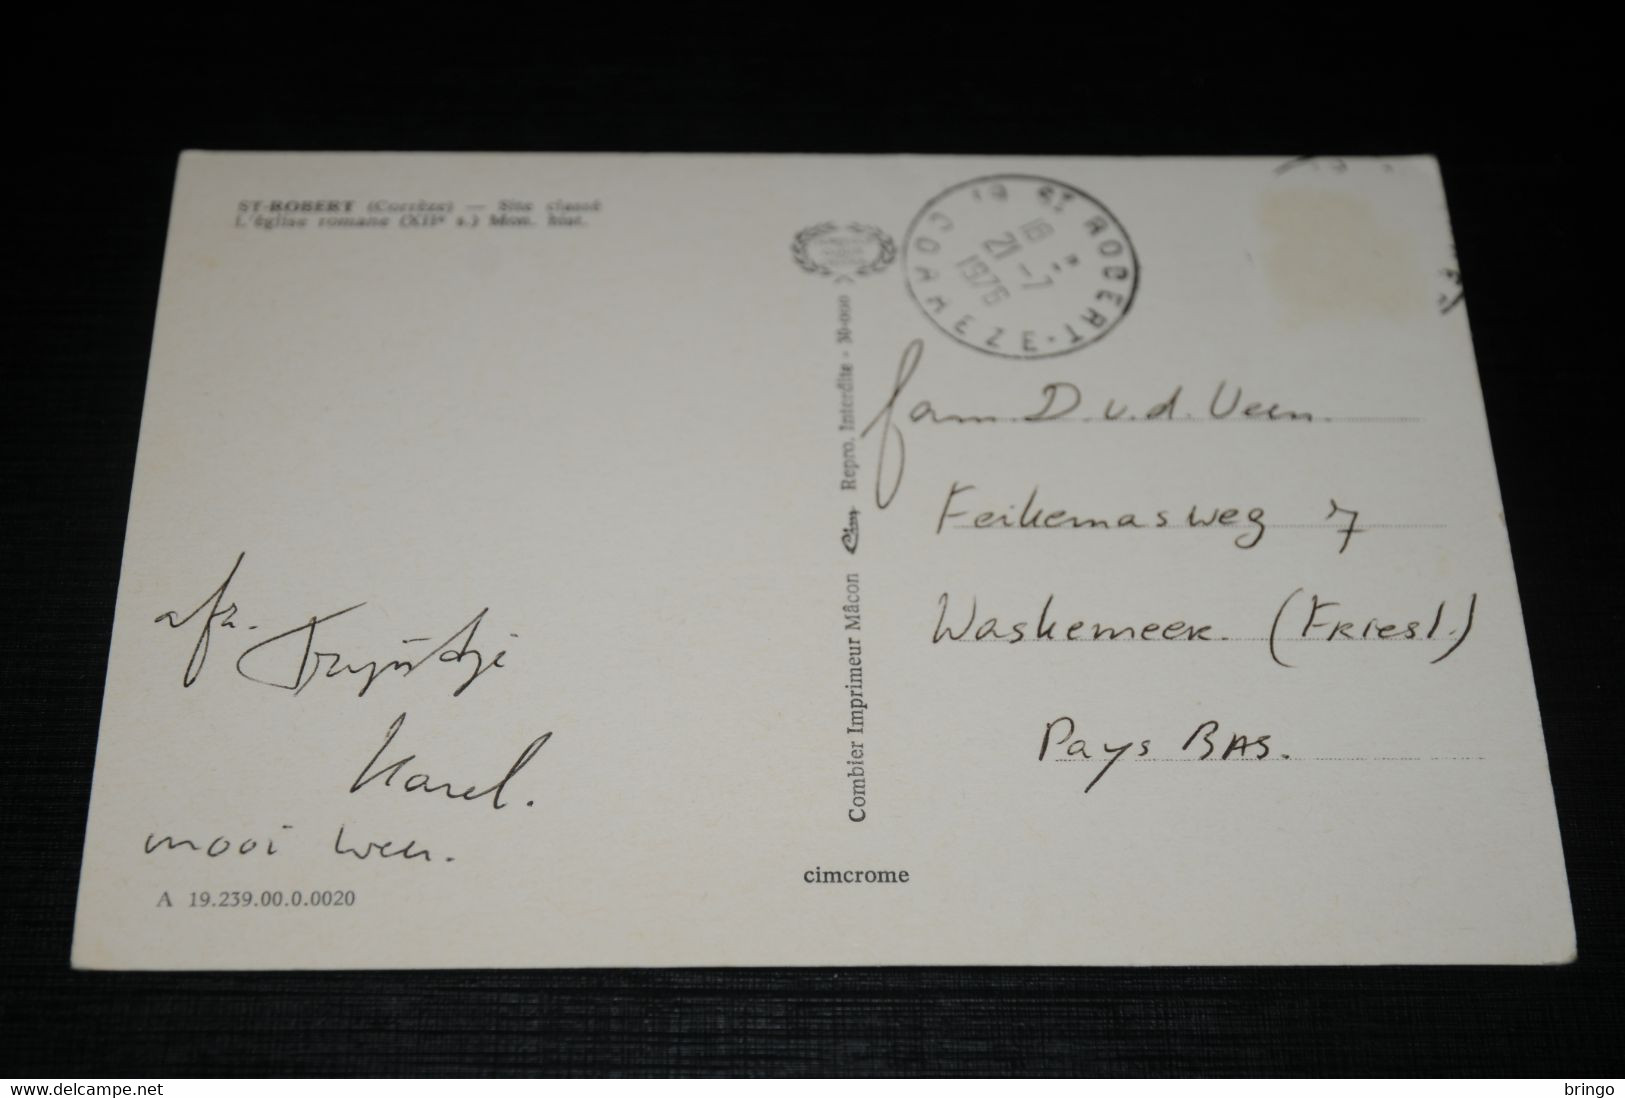 ST-ROBERT (Corrèze) — Site classé
L'église romane (XIIe s.) Mon. hist.
19 ST ROBERT · CORREZE
18 H
21 - 7
1976
Repro. Interdite - 30-000
Cim
Combier Imprimeur Mâcon
fam. D. v. d. Veen.
Feikemasweg 7
Waskemeer. (Friesl.)
Pays BAS.
afz. Tryntje
Karel.
mooi weer.
A 19.239.00.0.0020
cimcrome
www.delcampe.net
bringo